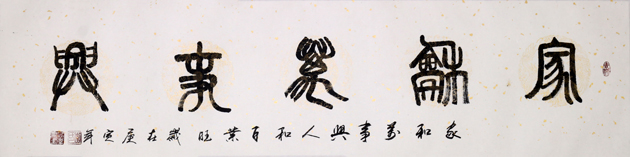 家龢萬事興
家和萬事興人和百業旺歲在庚寅年